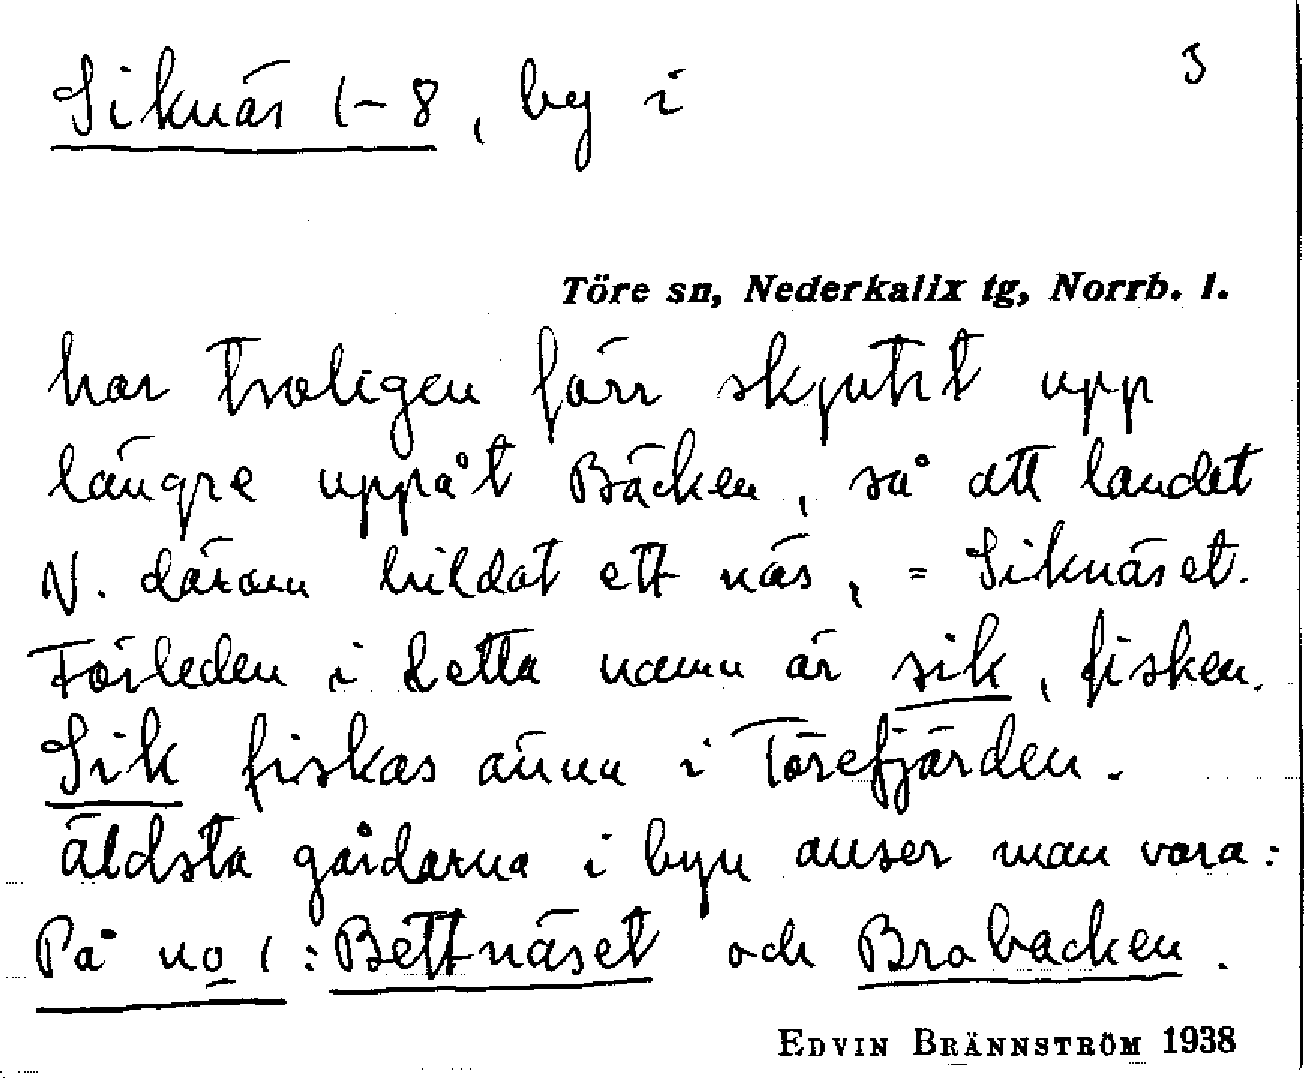 Siknäs 1-8, by i
3
Töre sn, Nederkalix tg, Norrb. l.
har troligen förr skjutit upp
längre uppåt Bäcken, så att landet
N. därom bildat ett näs, = Siknäset.
Förleden i detta namn är sik, fisken.
Sik fiskas ännu i Törefjärden.
äldsta gårdarna i byn anser man vara:
På no 1: Bettnäset och Brobacken.
EDVIN BRÄNNSTRÖM 1938